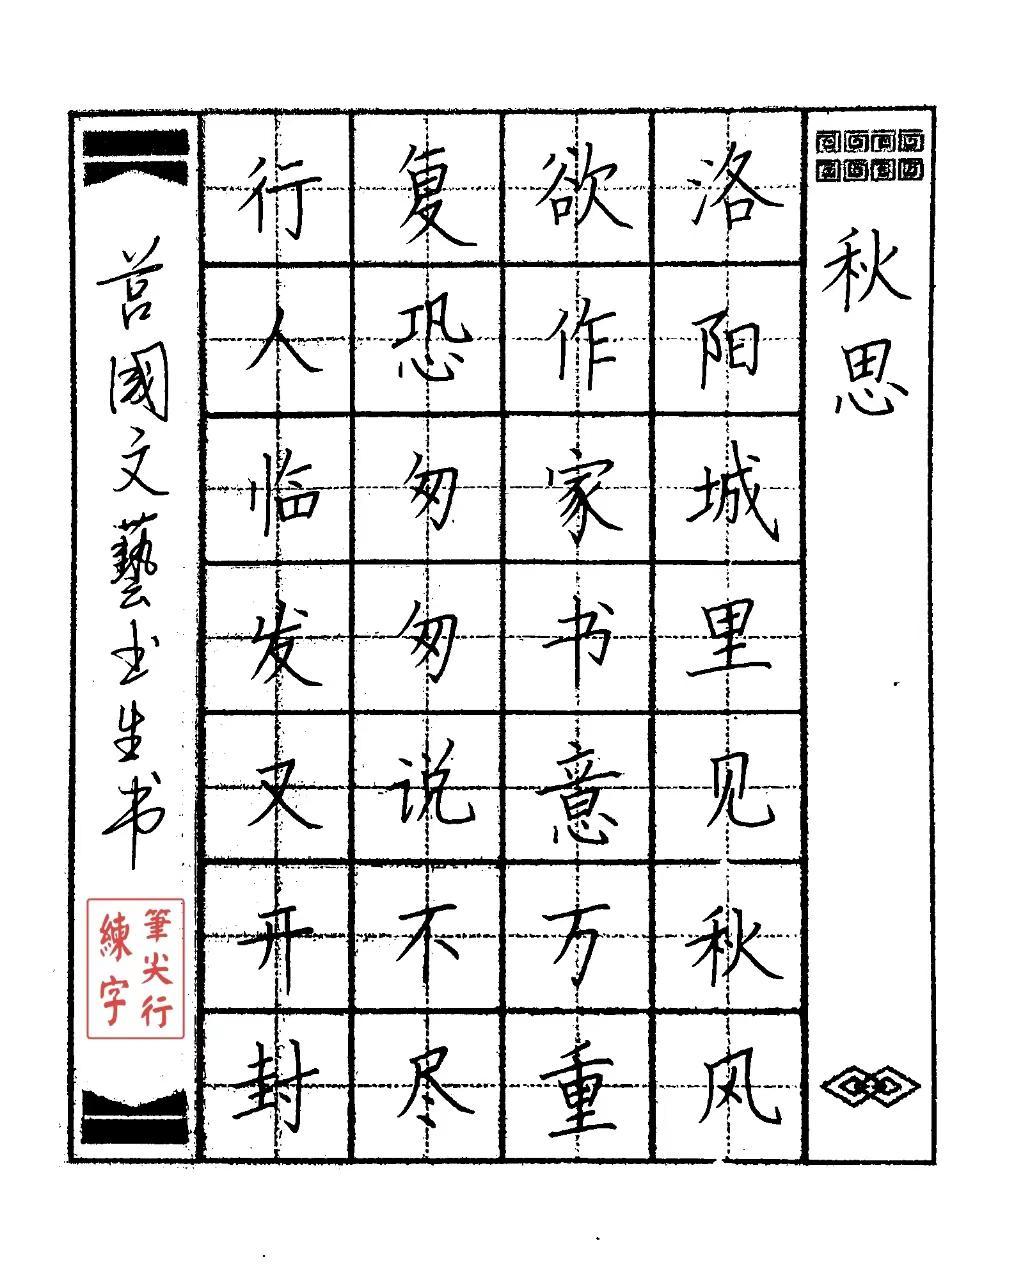 秋思
洛阳城里见秋风
欲作家书意万重
复恐匆匆说不尽
行人临发又开封
莒國文藝书生书
筆尖行
練字